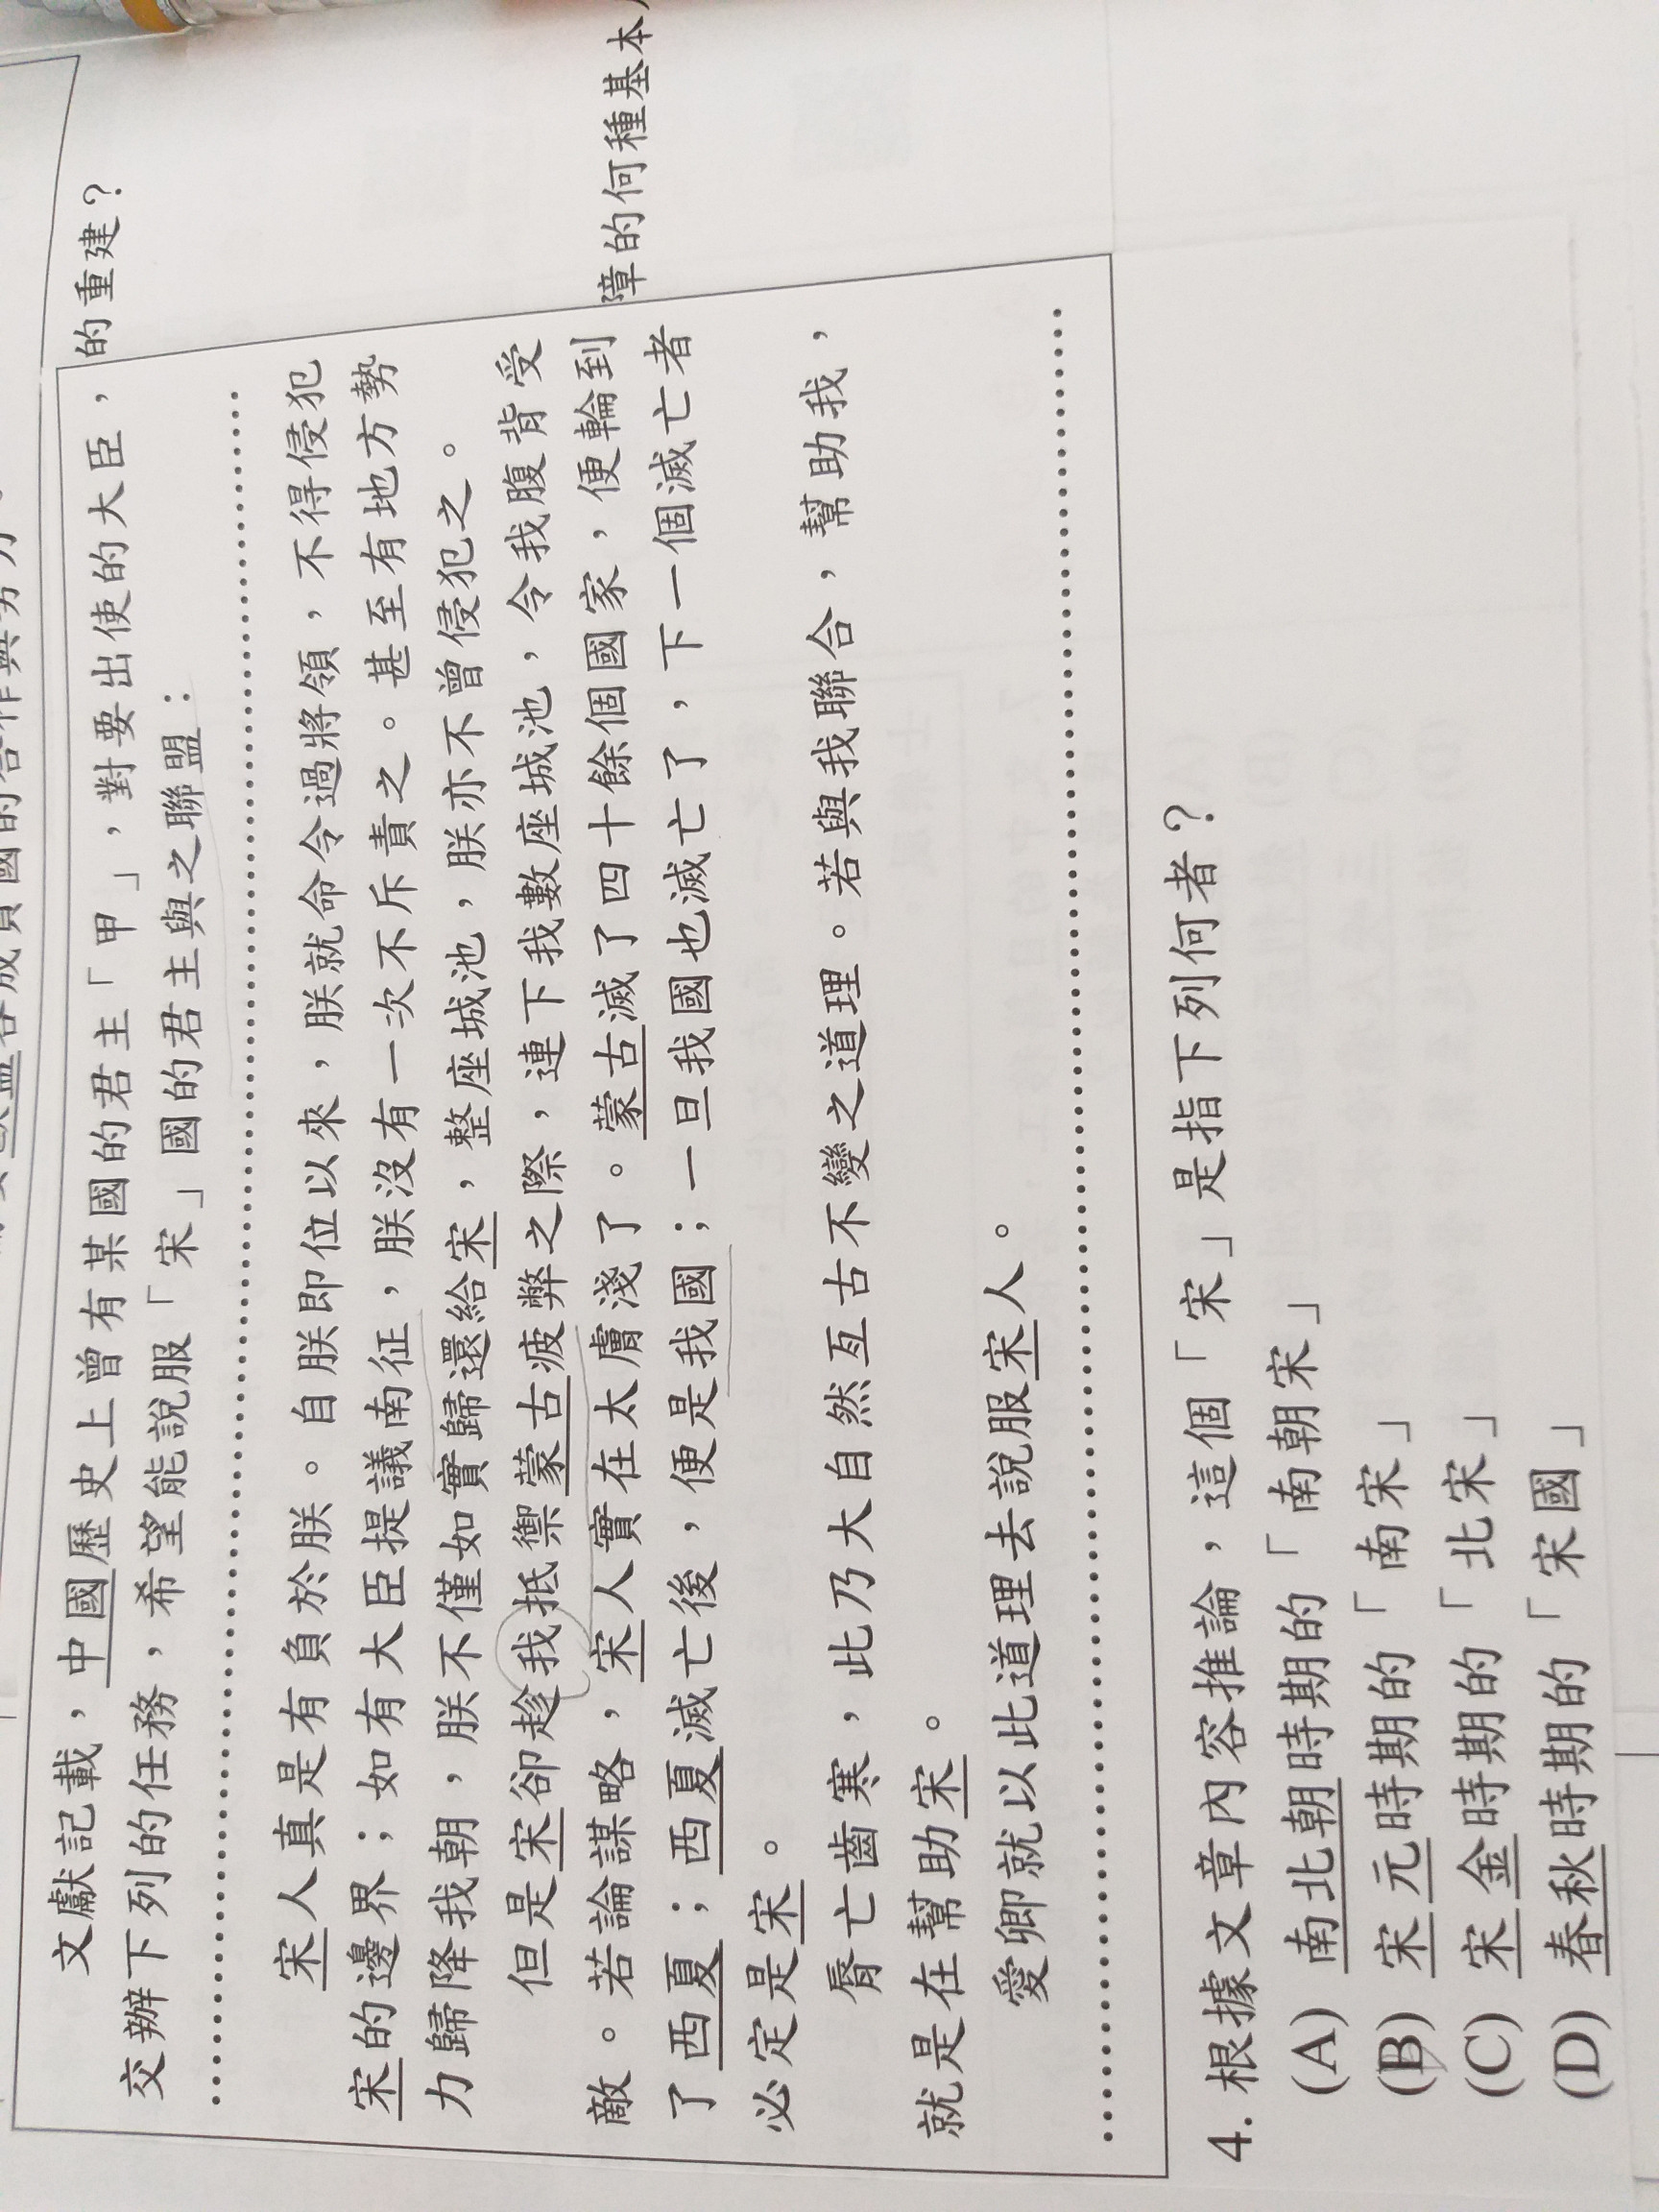 的重建？
障的何種基本
文獻記載，中國歷史上曾有某國的君主「甲」，對要出使的大臣，
交辦下列的任務，希望能說服「宋」國的君主與之聯盟：
宋人真是有負於朕。自朕即位以來，朕就命令過將領，不得侵犯
宋的邊界；如有大臣提議南征，朕沒有一次不斥責之。甚至有地方勢
力歸降我朝，朕不僅如實歸還給宋，整座城池，朕亦不曾侵犯之。
但是宋卻趁我抵禦蒙古疲弊之際，連下我數座城池，令我腹背受
敵。若論謀略，宋人實在太膚淺了。蒙古滅了四十餘個國家，便輪到
了西夏；西夏滅亡後，便是我國；一旦我國也滅亡了，下一個滅亡者
必定是宋。
脣亡齒寒，此乃大自然亙古不變之道理。若與我聯合，幫助我，
就是在幫助宋。
愛卿就以此道理去說服宋人。
4. 根據文章內容推論，這個「宋」是指下列何者？
(A) 南北朝時期的「南朝宋」
(B) 宋元時期的「南宋」
(C) 宋金時期的「北宋」
(D) 春秋時期的「宋國」